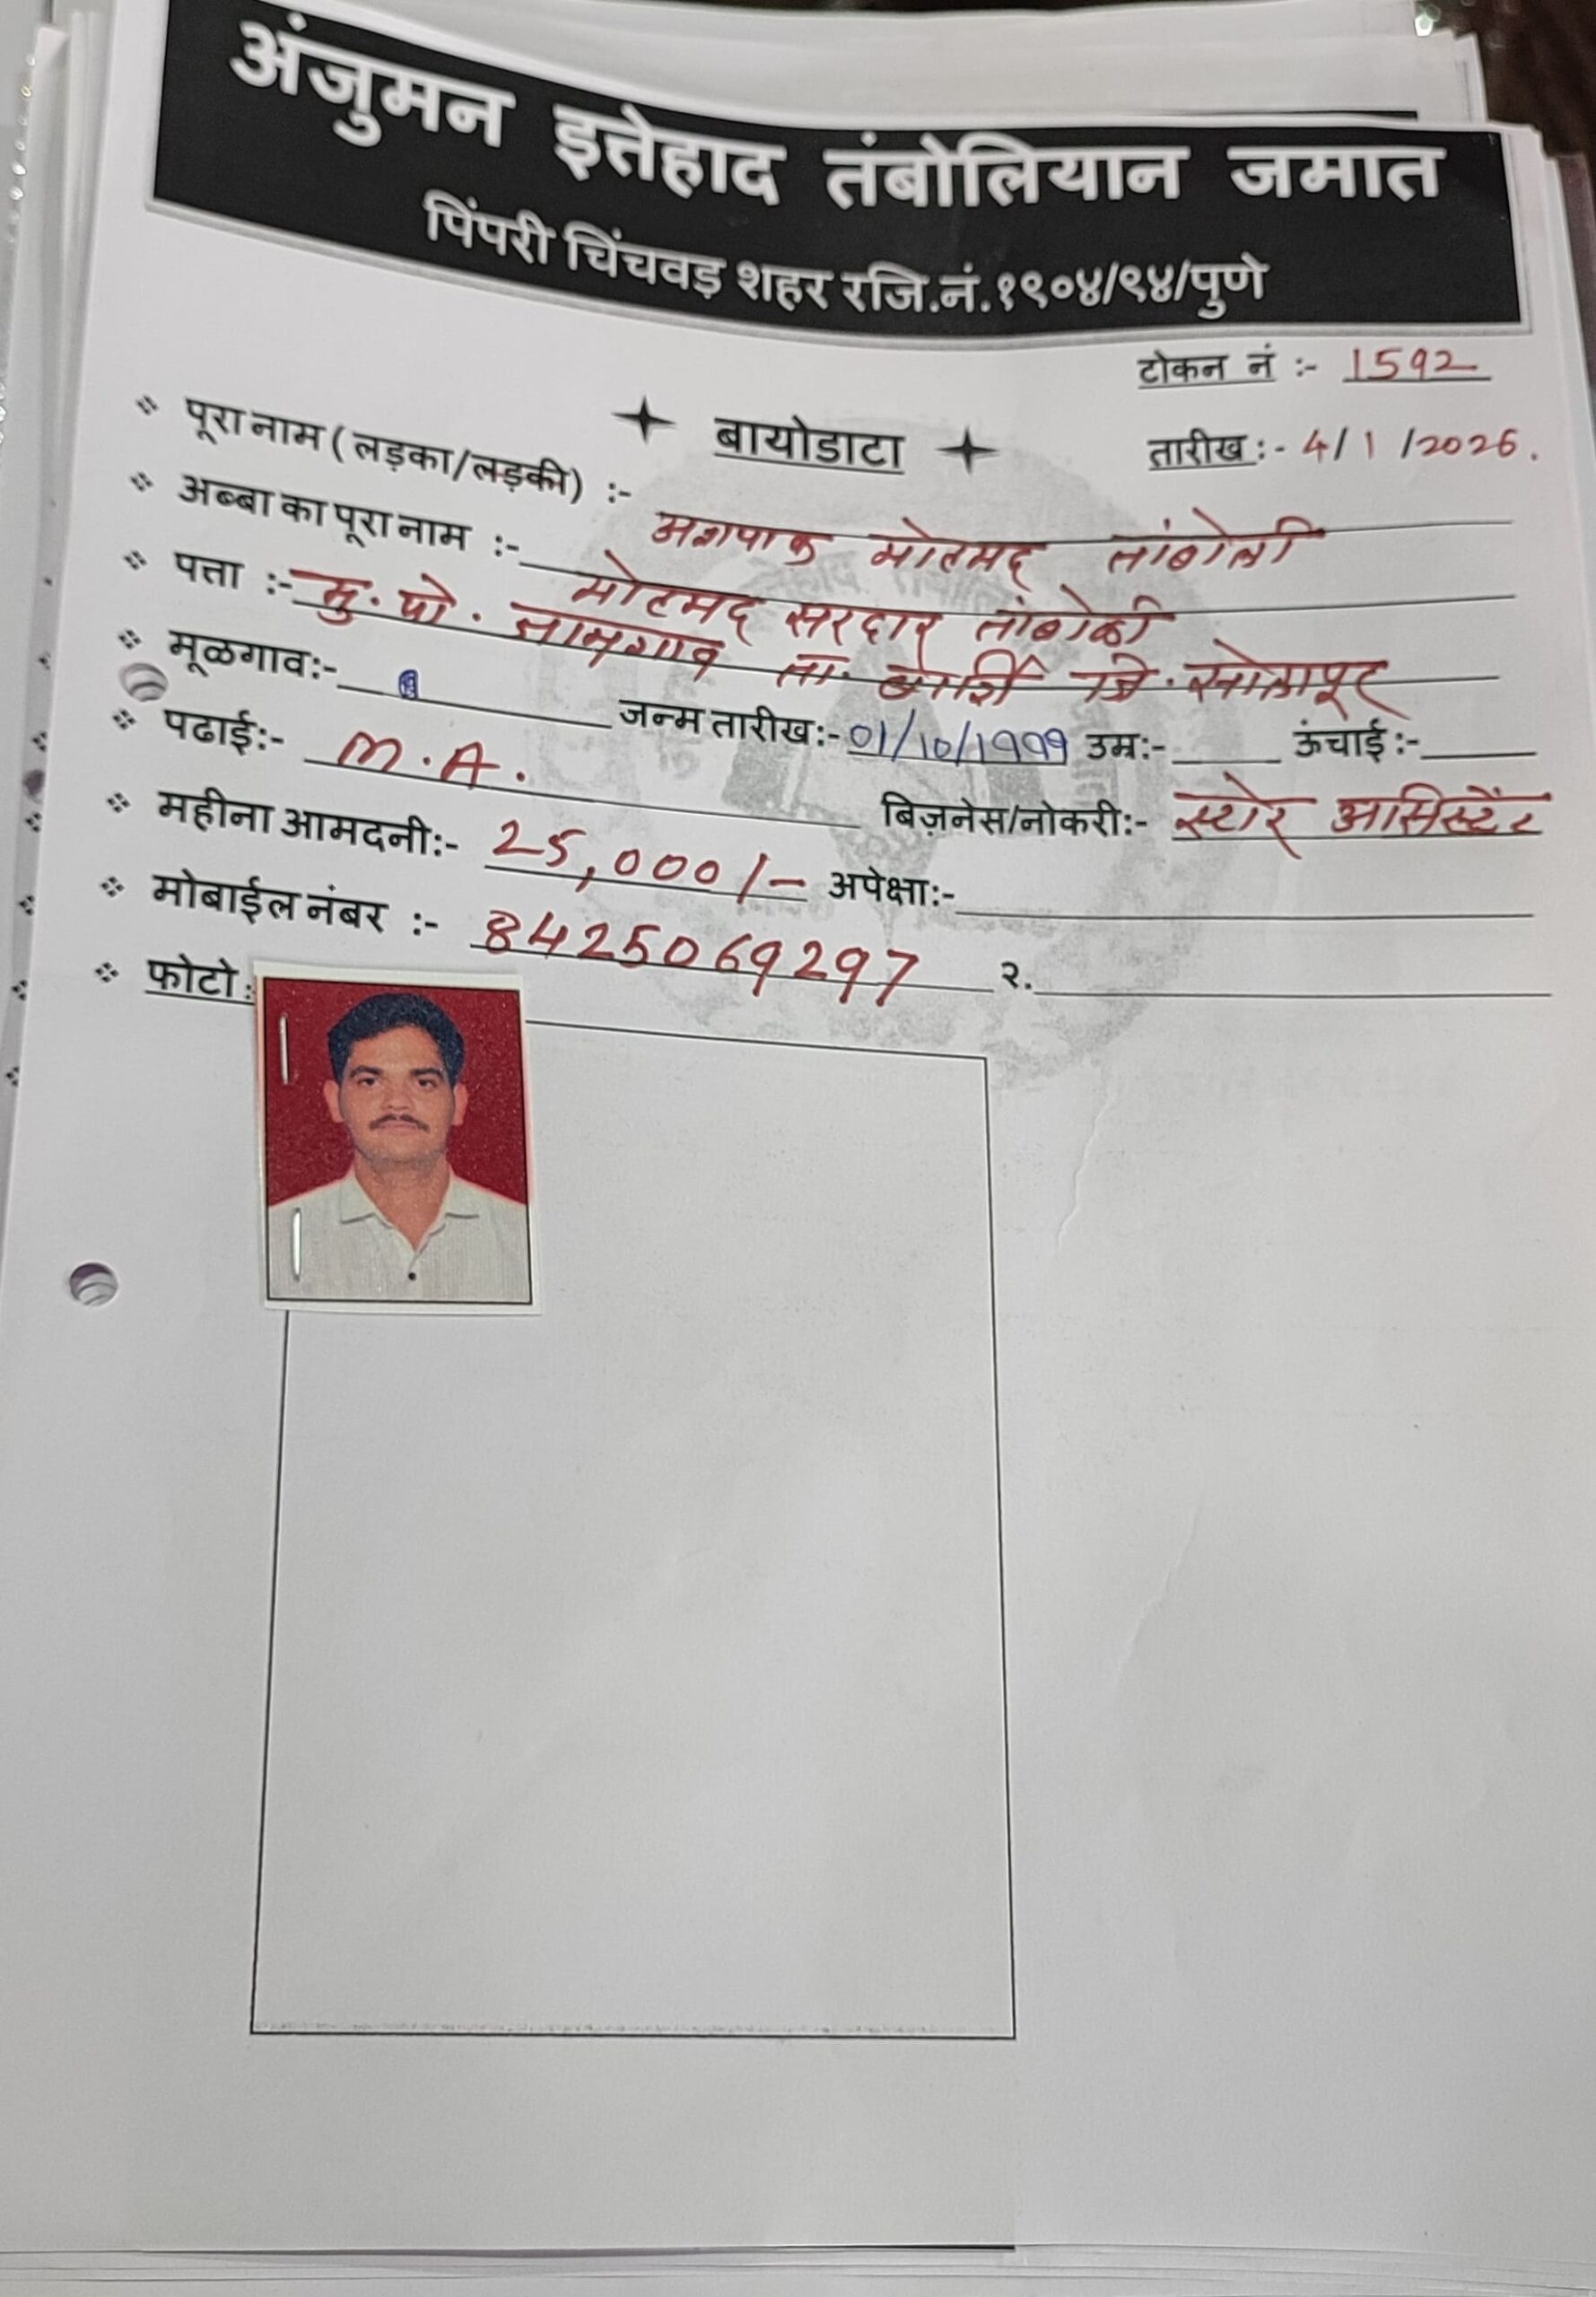 अंजुमन इत्तेहाद तंबोलियान जमात
पिंपरी चिंचवड़ शहर रजि.नं.१९०४/९४/पुणे
टोकन नं :- 1592
बायोडाटा
तारीख :- 4/1/2026.
पूरा नाम ( लड़का/लड़की) :- अशपाक मोहमद तांबोली
अब्बा का पूरा नाम :- मोहमद सरदार तांबोळी
पत्ता :- मु. पो. जामगाव ता. बार्शी जि. सोलापूर
मूळगाव:- जन्म तारीख:- 01/10/1999 उम्र:- ऊंचाई :-
पढाई:- M.A. बिज़नेस/नोकरी:- स्टोर असिस्टेंट
महीना आमदनी:- 25,000/- अपेक्षा:-
मोबाईल नंबर :- 8425069297 २.
फोटो :